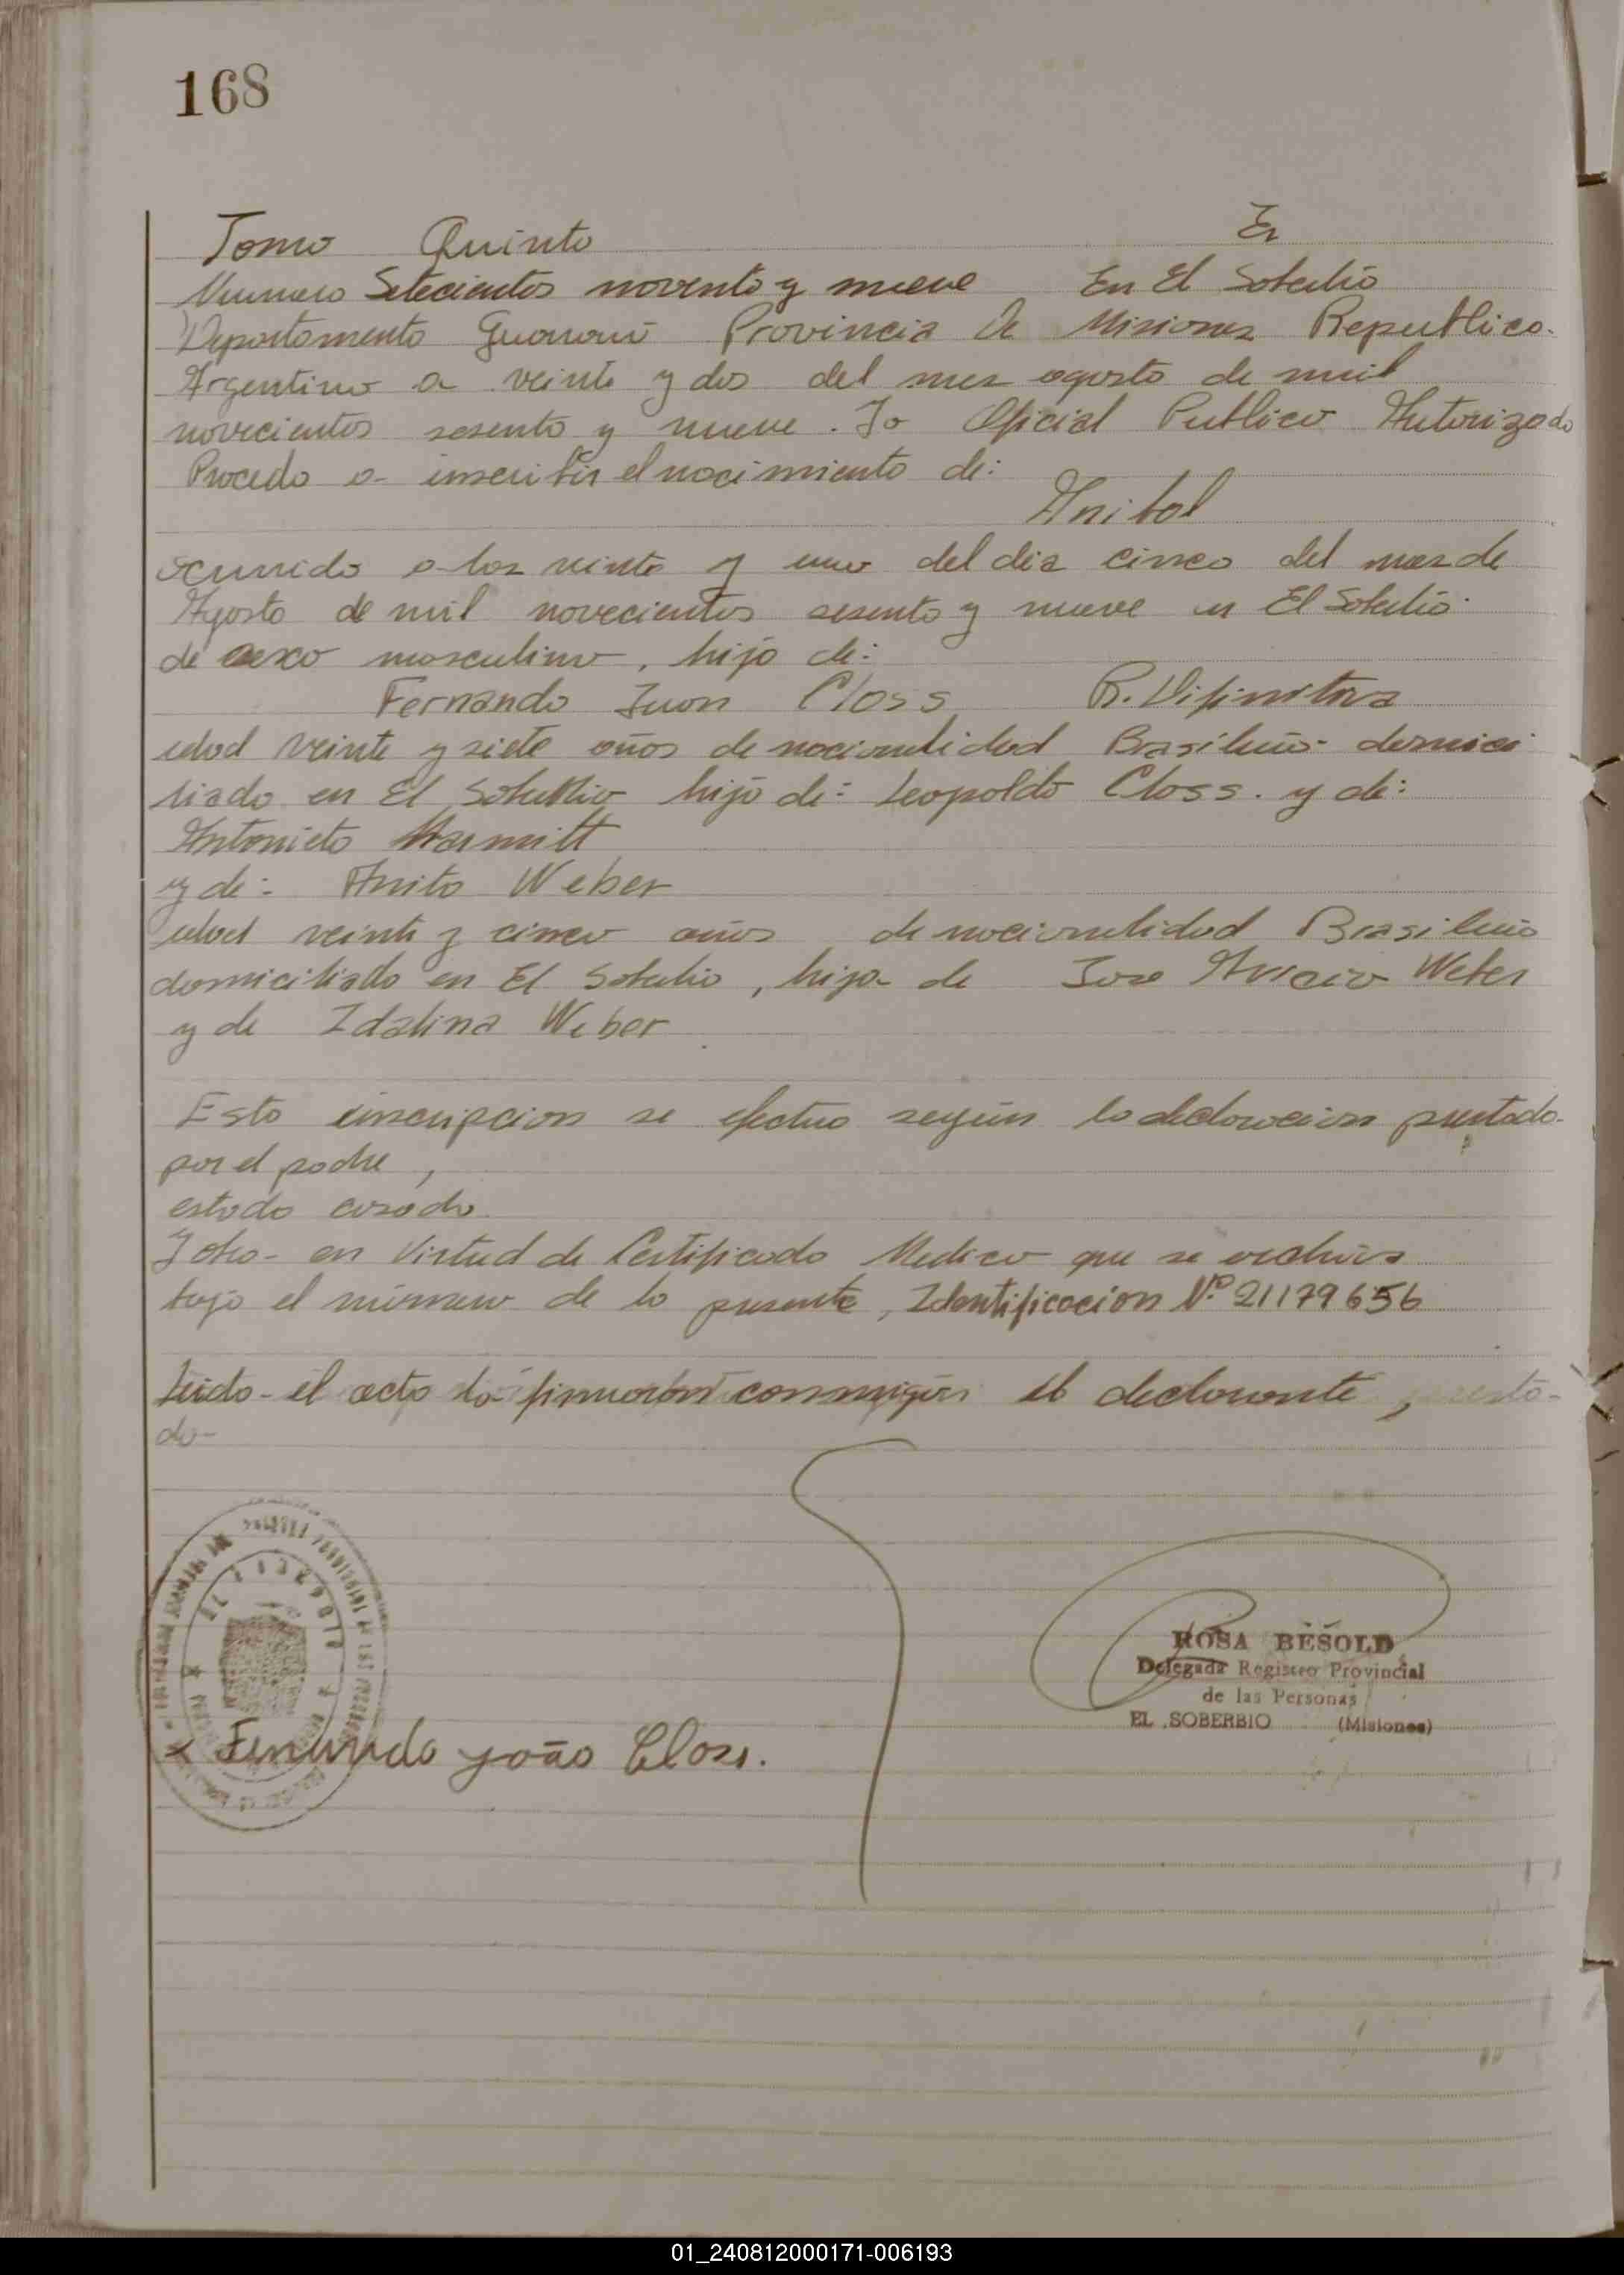 168
Tomo Quinto
Numero Setecientos noventa y nueve En El Soberbio
Departamento Guarani Provincia De Misiones Republica
Argentina a veinte y dos del mes agosto de mil
novecientos sesenta y nueve. Yo Oficial Publico Autorizado
Procedo a inscribir el nacimiento de:
Anibal
ocurrido a las veinte y uno del dia cinco del mes de
Agosto de mil novecientos sesenta y nueve en El Soberbio
de sexo masculino, hijo de:
Fernando Juan Closs R. Difinitiva
edad veinte y siete años de nacionalidad Brasileño domici
liado en El Soberbio hijo de: Leopoldo Closs. y de:
Antonieta
y de: Anita Weber
edad veinte y cinco años de nacionalidad Brasileña
domiciliado en El Soberbio, hija de Jose Weber
y de Idalina Weber
Esta inscripcion se efectua según la declaracion prestada
por el padre,
estado casado
en Virtud de Certificado Medico que se archiva
bajo el número de la presente, Identificacion Nº 21179656
Leido el acta la firmaron conmigo el declarante,
ROSA BESOLD
Delegada Registro Provincial
de las Personas
EL SOBERBIO (Misiones)
x Fernando João Closs.
01_240812000171-006193